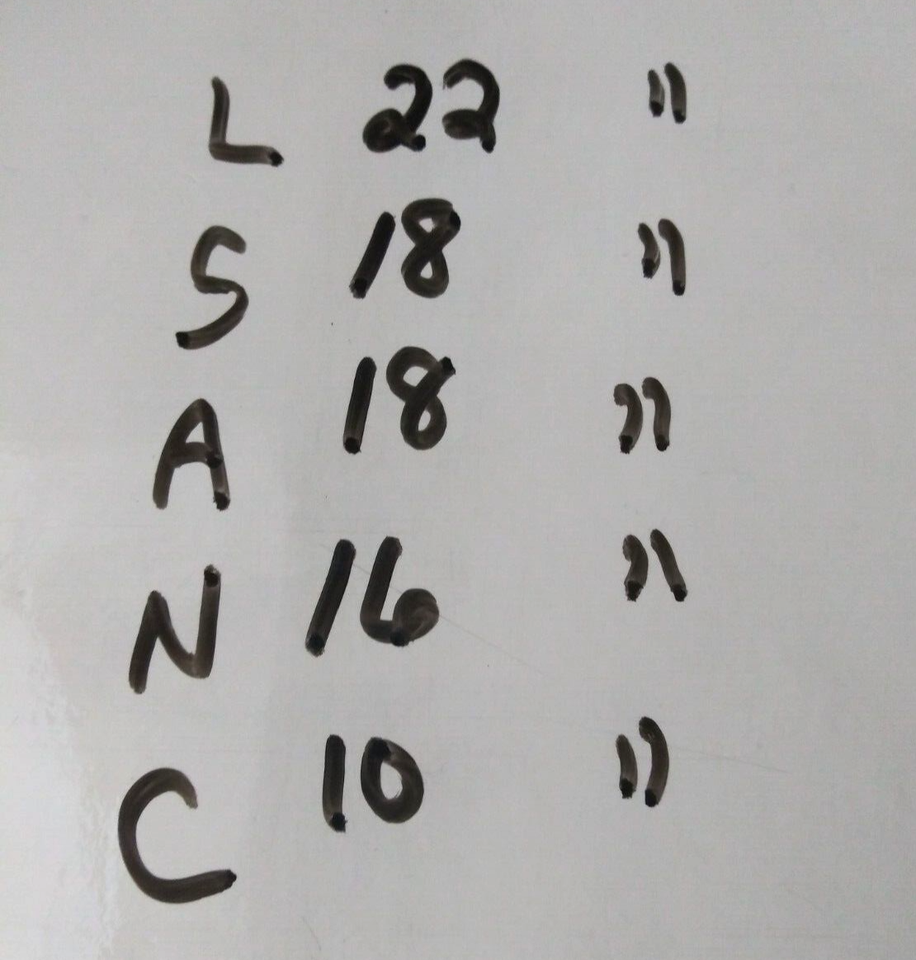 L 22 "
S 18 "
A 18 "
N 16 "
C 10 "